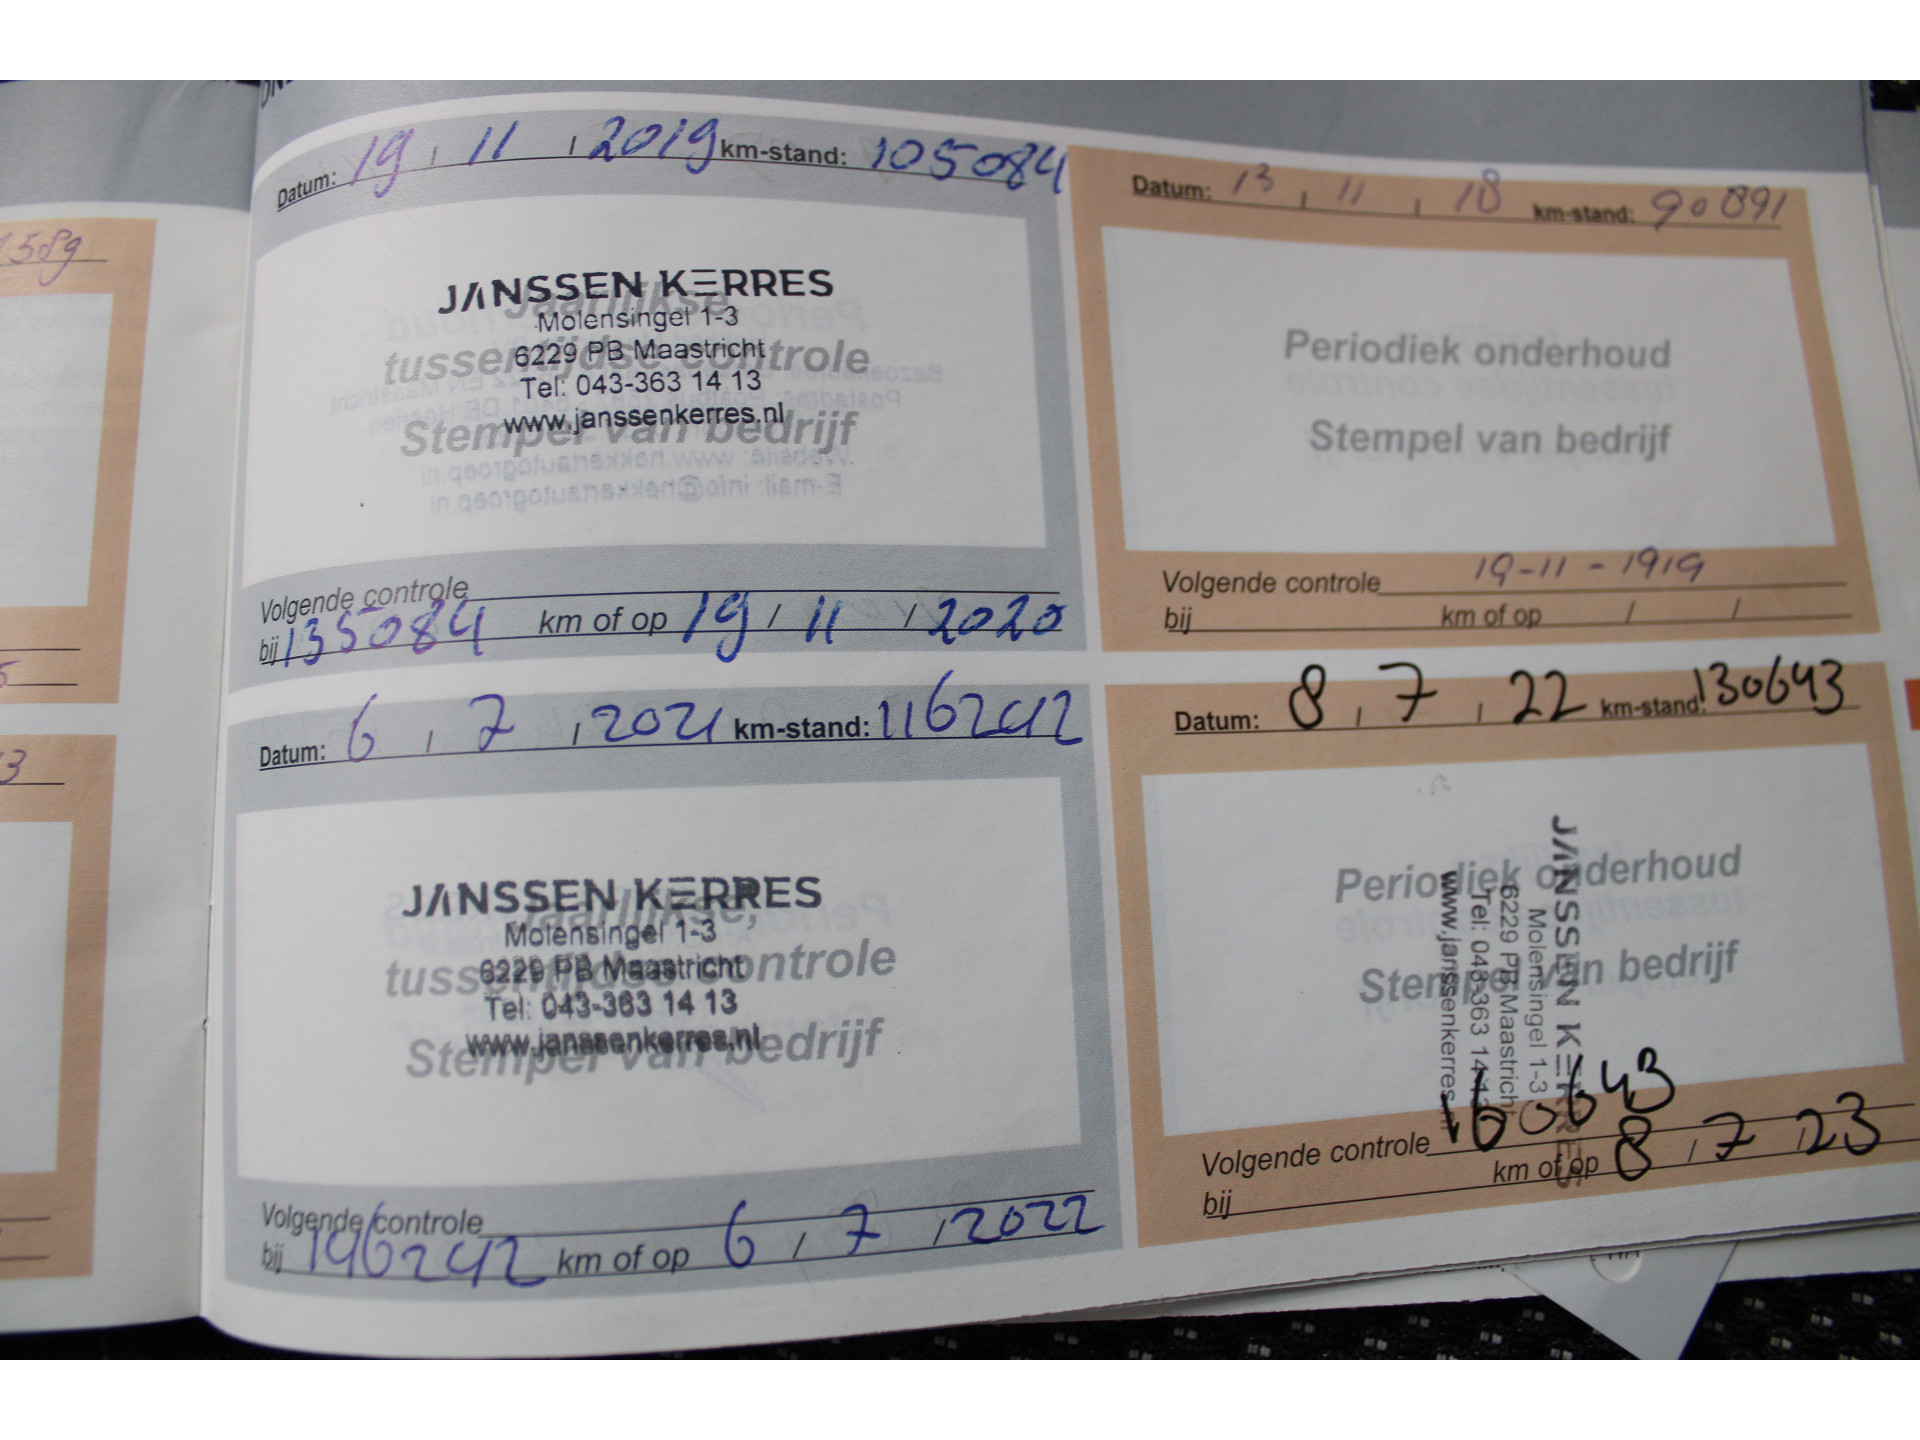 1589
5
3
Datum: 19 / 11 / 2019 km-stand: 105084
JANSSEN KERRES
Jaarlijkse,
Molensingel 1-3
6229 PB Maastricht
tussentijdse controle
Tel: 043-363 14 13
www.janssenkerres.nl
Stempel van bedrijf
Volgende controle
bij 135084 km of op 19 / 11 / 2020
Datum: 13 / 11 / 18 km-stand: 90891
Periodiek onderhoud
Stempel van bedrijf
Volgende controle 19-11-1919
bij km of op / /
Datum: 6 / 7 / 2021 km-stand: 116242
JANSSEN KERRES
Jaarlijkse,
Molensingel 1-3
tussentijdse controle
6229 PB Maastricht
Tel: 043-363 14 13
www.janssenkerres.nl
Stempel van bedrijf
Volgende controle
bij 146242 km of op 6 / 7 / 2022
Datum: 8 / 7 / 22 km-stand: 130643
Periodiek onderhoud
Stempel van bedrijf
JANSSEN KERRES
Molensingel 1-3
6229 PB Maastricht
Tel: 043-363 14 13
www.janssenkerres.nl
Volgende controle 160643
bij km of op 8 / 7 / 23